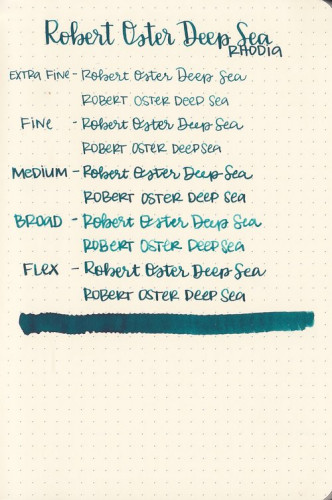 Robert Oster Deep Sea
RHODIA
EXTRA FINE - Robert Oster Deep Sea
ROBERT OSTER DEEP SEA
FINE - Robert Oster Deep Sea
ROBERT OSTER DEEP SEA
MEDIUM - Robert Oster Deep Sea
ROBERT OSTER DEEP SEA
BROAD - Robert Oster Deep Sea
ROBERT OSTER DEEP SEA
FLEX - Robert Oster Deep Sea
ROBERT OSTER DEEP SEA